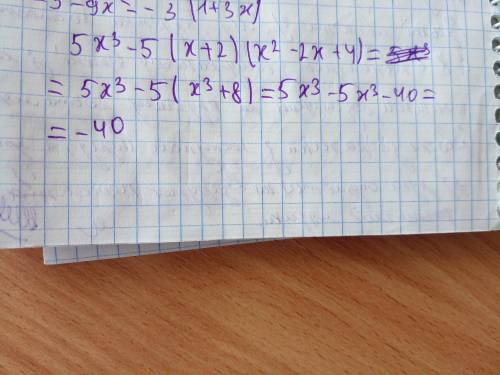 -9x = -3(1+3x)
5x³ - 5(x+2)(x² - 2x + 4) =
= 5x³ - 5(x³ + 8) = 5x³ - 5x³ - 40 =
= -40